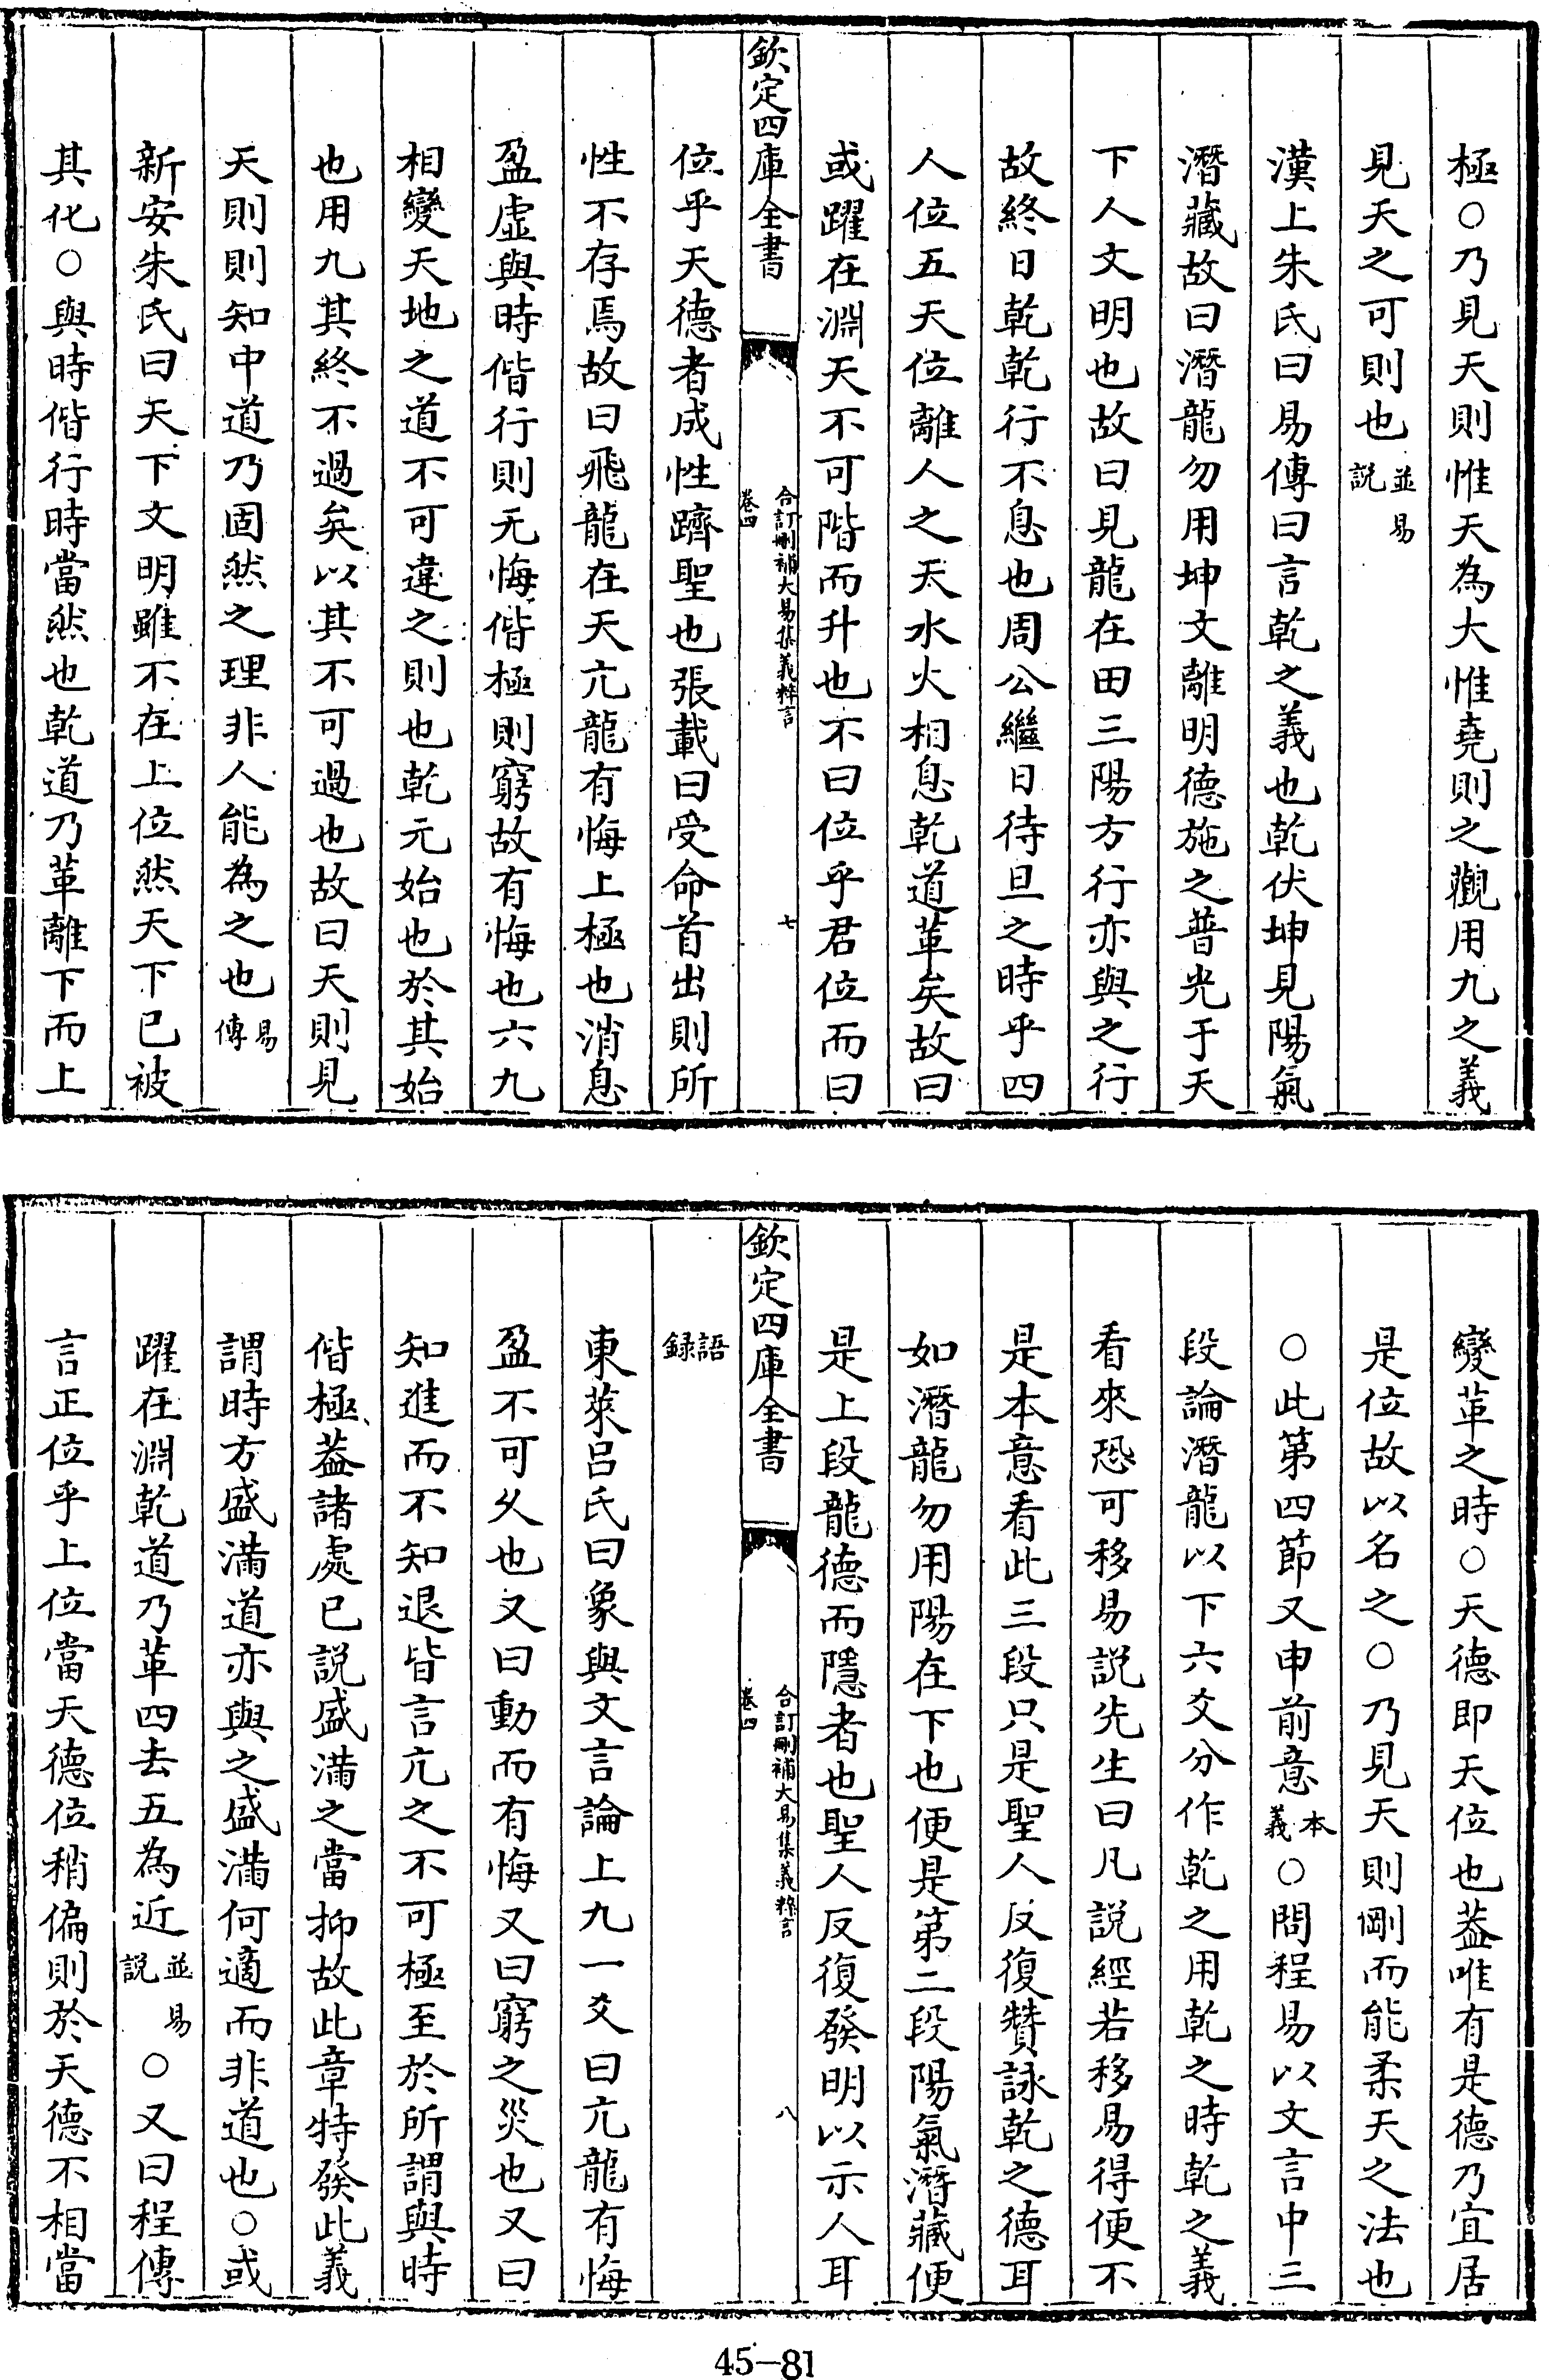 極○乃見天則惟天為大惟堯則之觀用九之義
見天之可則也並易說
漢上朱氏曰易傳曰言乾之義也乾伏坤見陽氣
潛藏故曰潛龍勿用坤文離明德施之普光于天
下人文明也故曰見龍在田三陽方行亦與之行
故終日乾乾行不息也周公繼日待旦之時乎四
人位五天位離人之天水火相息乾道革矣故曰
或躍在淵天不可階而升也不曰位乎君位而曰
欽定四庫全書
合訂刪補大易集義粹言
卷四
七
位乎天德者成性躋聖也張載曰受命首出則所
性不存焉故曰飛龍在天亢龍有悔上極也消息
盈虛與時偕行則无悔偕極則窮故有悔也六九
相變天地之道不可違之則也乾元始也於其始
也用九其終不過矣以其不可過也故曰天則見
天則則知中道乃固然之理非人能為之也易傳
新安朱氏曰天下文明雖不在上位然天下已被
其化○與時偕行時當然也乾道乃革離下而上
變革之時○天德即天位也葢唯有是德乃宜居
是位故以名之○乃見天則剛而能柔天之法也
○此第四節又申前意本義○問程易以文言中三
段論潛龍以下六爻分作乾之用乾之時乾之義
看來恐可移易說先生曰凡說經若移易得便不
是本意看此三段只是聖人反復贊詠乾之德耳
如潛龍勿用陽在下也便是第二段陽氣潛藏便
是上段龍德而隱者也聖人反復發明以示人耳
欽定四庫全書
合訂刪補大易集義粹言
卷四
八
語録
東萊呂氏曰象與文言論上九一爻曰亢龍有悔
盈不可久也又曰動而有悔又曰窮之災也又曰
知進而不知退皆言亢之不可極至於所謂與時
偕極葢諸處已說盛滿之當抑故此章特發此義
謂時方盛滿道亦與之盛滿何適而非道也○或
躍在淵乾道乃革四去五為近並易說○又曰程傳
言正位乎上位當天德位稍偏則於天德不相當
45-81